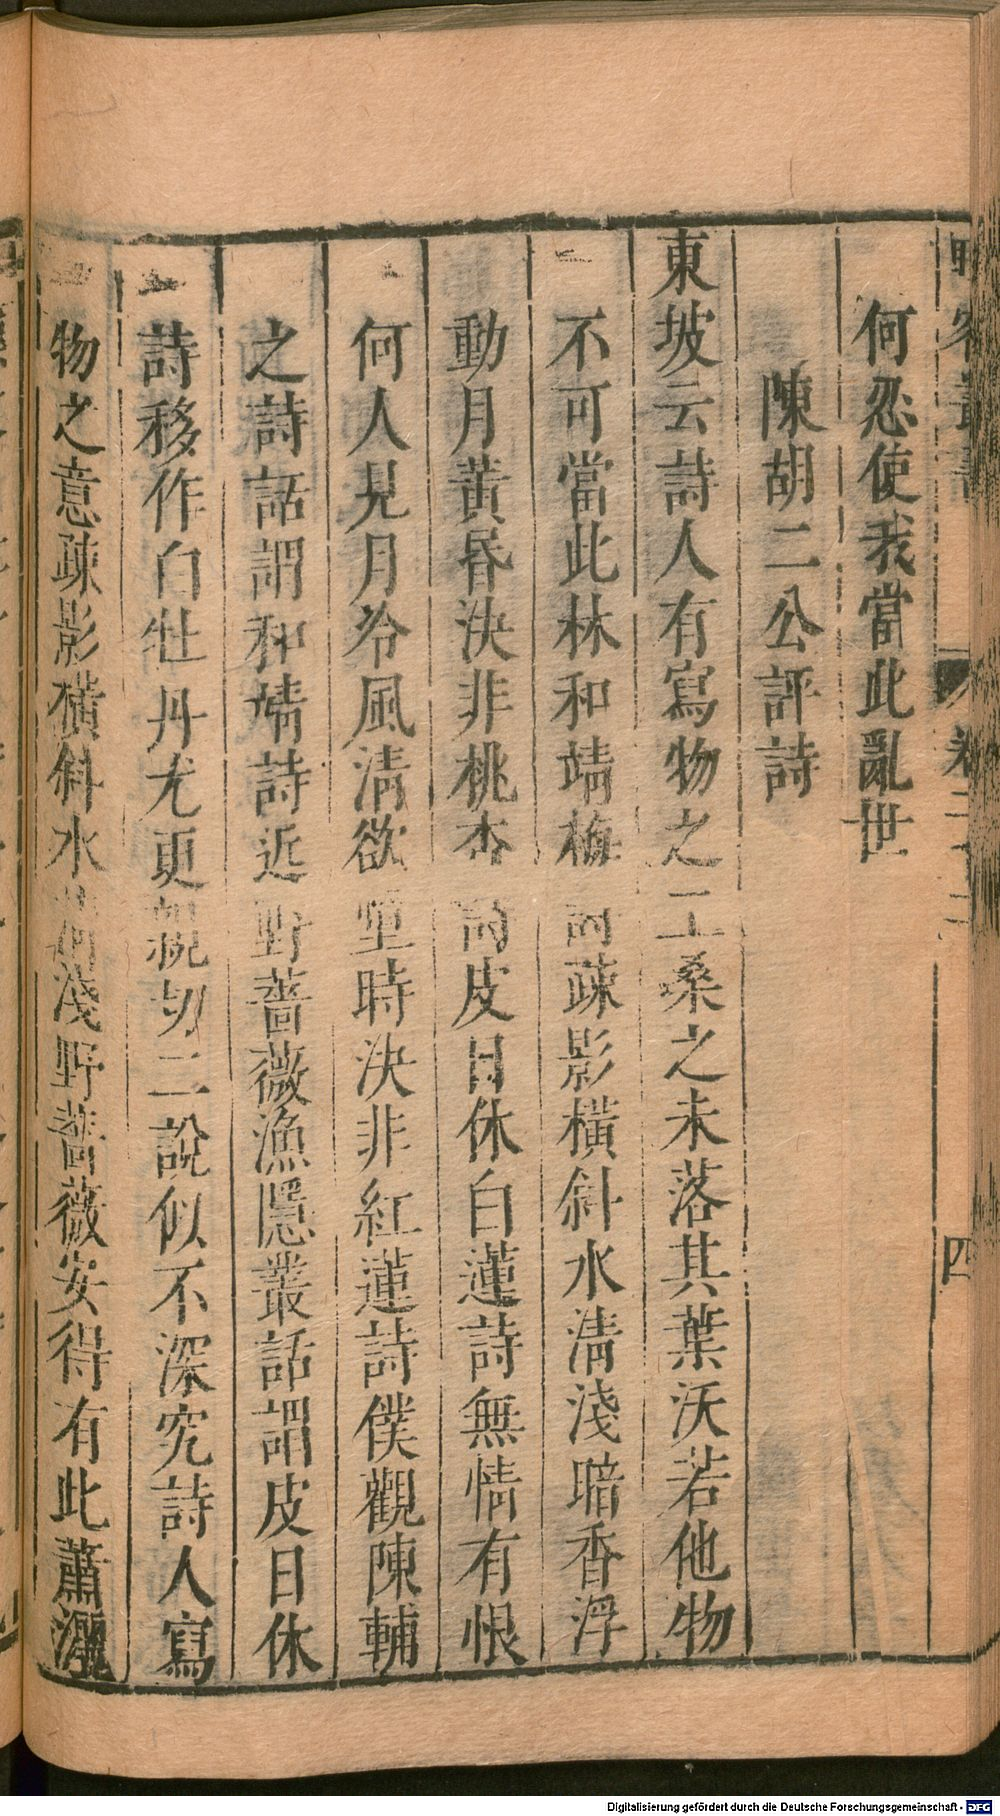 何忍使我當此亂世
陳胡二公評詩
東坡云詩人有寫物之工桑之未落其葉沃若他物
不可當此林和靖梅詩疎影橫斜水淸淺暗香浮
動月黃昏決非桃杏詩皮日休白蓮詩無情有恨
何人見月冷風淸欲墮時決非紅蓮詩僕觀陳輔
之詩話謂和靖詩近野薔薇漁隱叢話謂皮日休
詩移作白牡丹尤更親切二說似不深究詩人寫
物之意疎影橫斜水淸淺野薔薇安得有此蕭灑
卷二十二
四
Digitalisierung gefördert durch die Deutsche Forschungsgemeinschaft - DFG